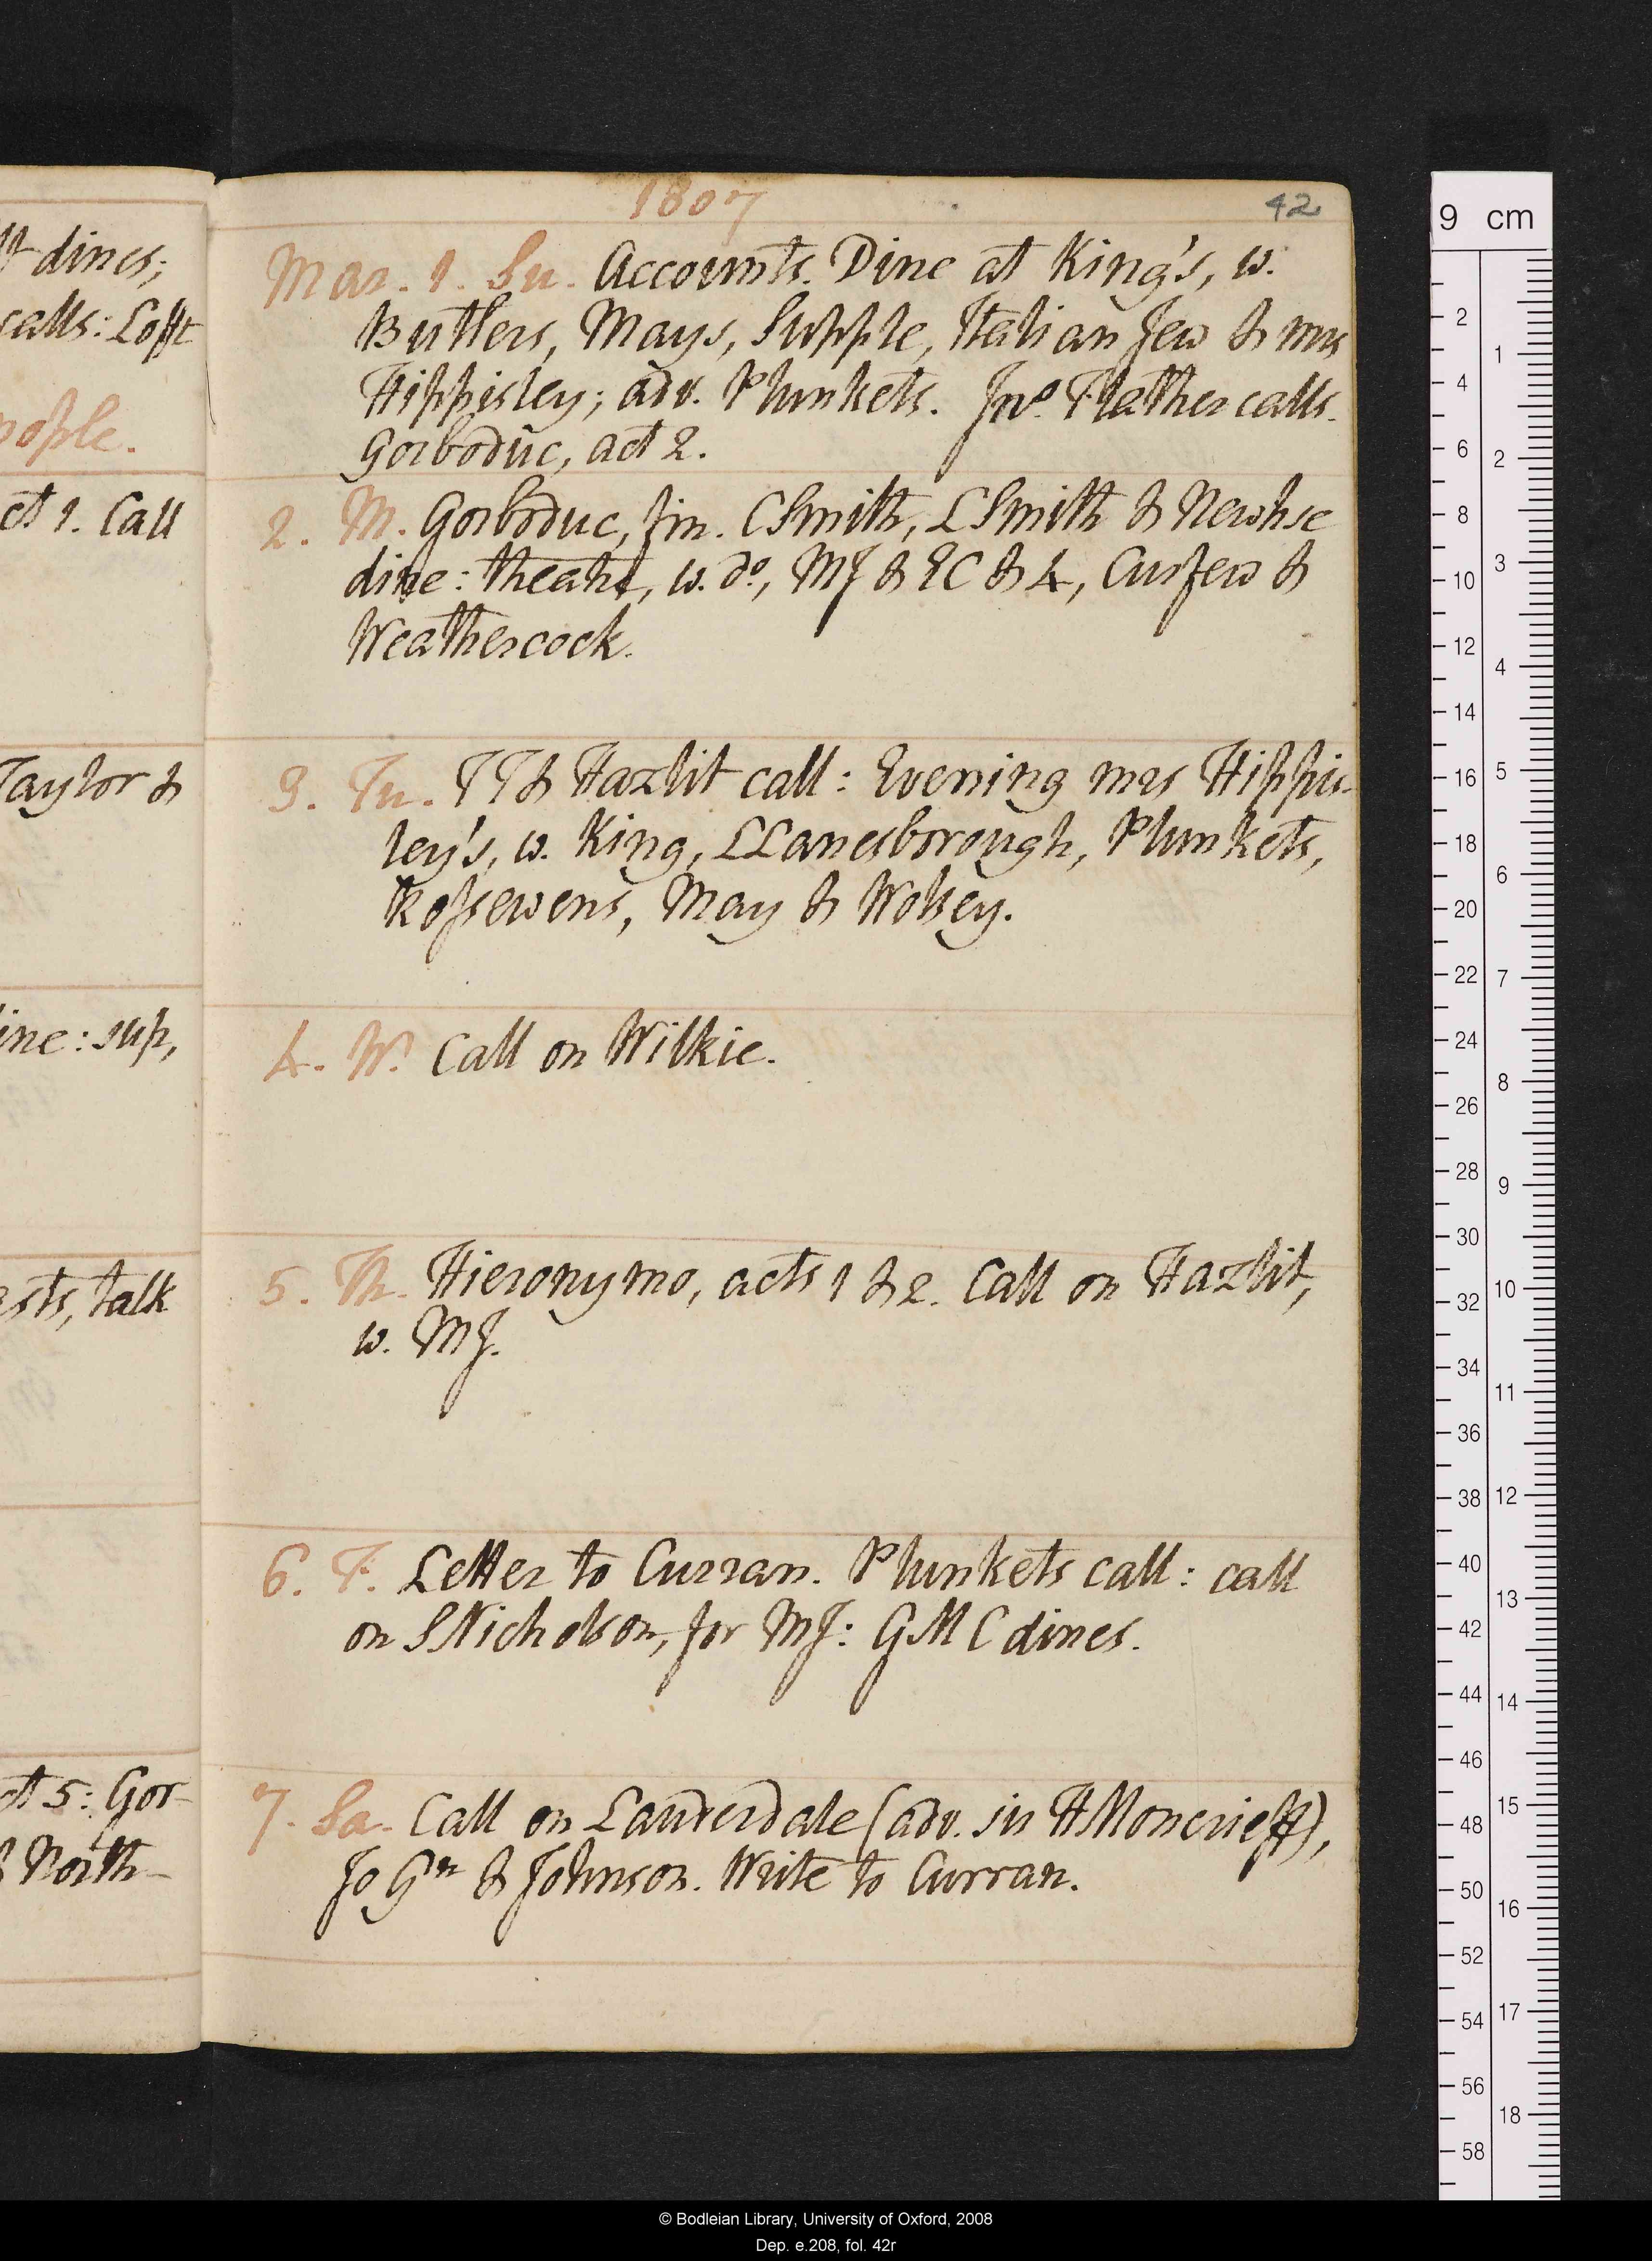 1807
42
Mar. 1. Su. Accounts. Dine at King's, w.
Butlers, Mays, Supple, Italian Jew & mrs
Hippisley; adv. Plunkets. Jno. Flather calls.
Gorboduc, act 2.
2. M. Gorboduc, fin. CSmith, LSmith & Newhse
dine: theatre, w. do, MJ & EC & 4, Curfew &
Weathercock.
3. Tu. TT & Hazlit call: Evening mrs Hippis-
ley's, w. King, LLanesborough, Plunkets,
Rossewens, May & Wolsey.
4. W. Call on Wilkie.
5. Th. Hieronymo, acts 1 & 2. Call on Hazlit,
w. MJ.
6. F. Letter to Curran. Plunkets call: call
on SNicholson, for MJ: GMC dines.
7. Sa. Call on Lauderdale (adv. sir HMoncrieff),
Jo Gn & Johnson. Write to Curran.
dines;
calls: Lofft
ople.
ct 1. Call
Taylor &
ine: sup,
sts, talk
ct 5: Gor-
North-
9 cm
2
4
6
8
10
12
14
16
18
20
22
24
26
28
30
32
34
36
38
40
42
44
46
48
50
52
54
56
58
1
2
3
4
5
6
7
8
9
10
11
12
13
14
15
16
17
18
© Bodleian Library, University of Oxford, 2008
Dep. e.208, fol. 42r